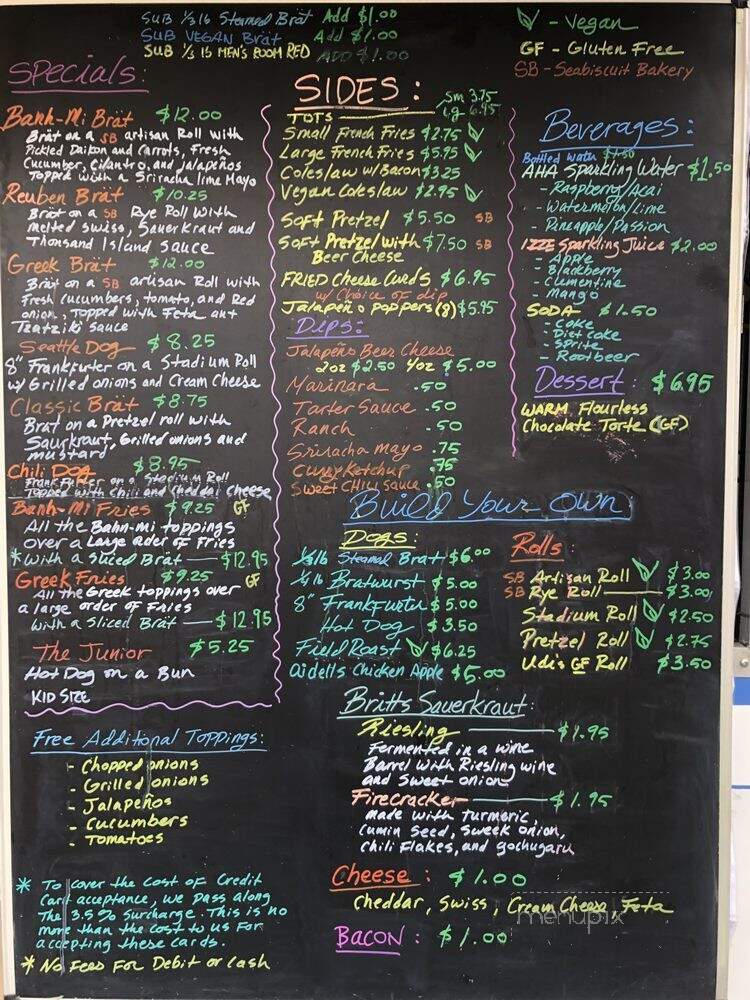 SUB 1/3 lb Steamed Brät Add $1.00
SUB VEGAN Brät Add $1.00
SUB 1/3 lb MEN'S ROOM RED ADD $1.00
- Vegan
GF - Gluten Free
SB - Seabiscuit Bakery
Specials:
Banh-Mi Brät $12.00
Brät on a SB artisan Roll with
Pickled Daikon and Carrots, Fresh
Cucumber, Cilantro, and Jalapeños
Topped with a Sriracha lime Mayo
Reuben Brät $10.25
Brät on a SB Rye Roll With
melted Swiss, Sauerkraut and
Thousand Island Sauce
Greek Brät $12.00
Brät on a SB artisan Roll with
Fresh Cucumbers, tomato, and Red
onion, Topped with Feta and
Tzatziki Sauce
Seattle Dog $8.25
8" Frankfurter on a Stadium Roll
w/ Grilled onions and Cream Cheese
Classic Brät $8.75
Brät on a Pretzel roll with
Saurkraut, Grilled onions and
mustard
Chili Dog $8.95
Frankfurter on a Stadium Roll
Topped with Chili and Cheddar Cheese
Banh-Mi Fries $9.25 GF
All the Bahn-mi toppings
over a Large order of Fries
* with a Sliced Brät — $12.95
Greek Fries $9.25 GF
All the Greek toppings over
a large order of Fries
with a Sliced Brät — $12.95
The Junior $5.25
Hot Dog on a Bun
KID SIZE
Free Additional Toppings:
- Chopped onions
- Grilled onions
- Jalapeños
- Cucumbers
- Tomatoes
* To cover the cost of Credit
Card acceptance, we pass along
The 3.5% surcharge. This is no
more than the cost to us For
accepting these cards.
* No Fees For Debit or Cash
SIDES:
TOTS — sm 3.75
Lg 6.95
Small French Fries $2.75
Large French Fries $5.95
Coleslaw w/Bacon $3.25
Vegan Coleslaw $2.95
Soft Pretzel $5.50 SB
Soft Pretzel with $7.50 SB
Beer Cheese
FRIED Cheese Curds $6.95
w/ Choice of dip
Jalapeño poppers (8) $5.95
Dips:
Jalapeño Beer Cheese
2oz $2.50 4oz $5.00
Marinara .50
Tarter Sauce .50
Ranch .50
Sriracha mayo .75
Curry Ketchup .75
Sweet Chili Sauce .50
Beverages:
Bottled Water $1.50
AHA Sparkling Water $1.50
- Raspberry/Acai
- Watermelon/Lime
- Pineapple/Passion
IZZE Sparkling Juice $2.00
- Apple
- Blackberry
- Clementine
- Mango
SODA $1.50
- Coke
- Diet Coke
- Sprite
- Rootbeer
Dessert: $6.95
WARM Flourless
Chocolate Torte (GF)
Build Your Own
Dogs:
1/3 lb Steamed Brat $6.00
1/4 lb Bratwurst $5.00
8" Frankfurter $5.00
Hot Dog $3.50
Field Roast $6.25
Aidells Chicken Apple $5.00
Rolls:
SB Artisan Roll $3.00
SB Rye Roll — $3.00
Stadium Roll $2.50
Pretzel Roll $2.75
Udi's GF Roll $3.50
Britts Sauerkraut:
Riesling — $1.95
Fermented in a wine
Barrel with Riesling wine
and Sweet onion
Firecracker — $1.95
made with turmeric,
cumin seed, sweek onion,
chili Flakes, and gochugaru
Cheese: $1.00
Cheddar, Swiss, Cream Cheese, Feta
menupix
BACON: $1.00